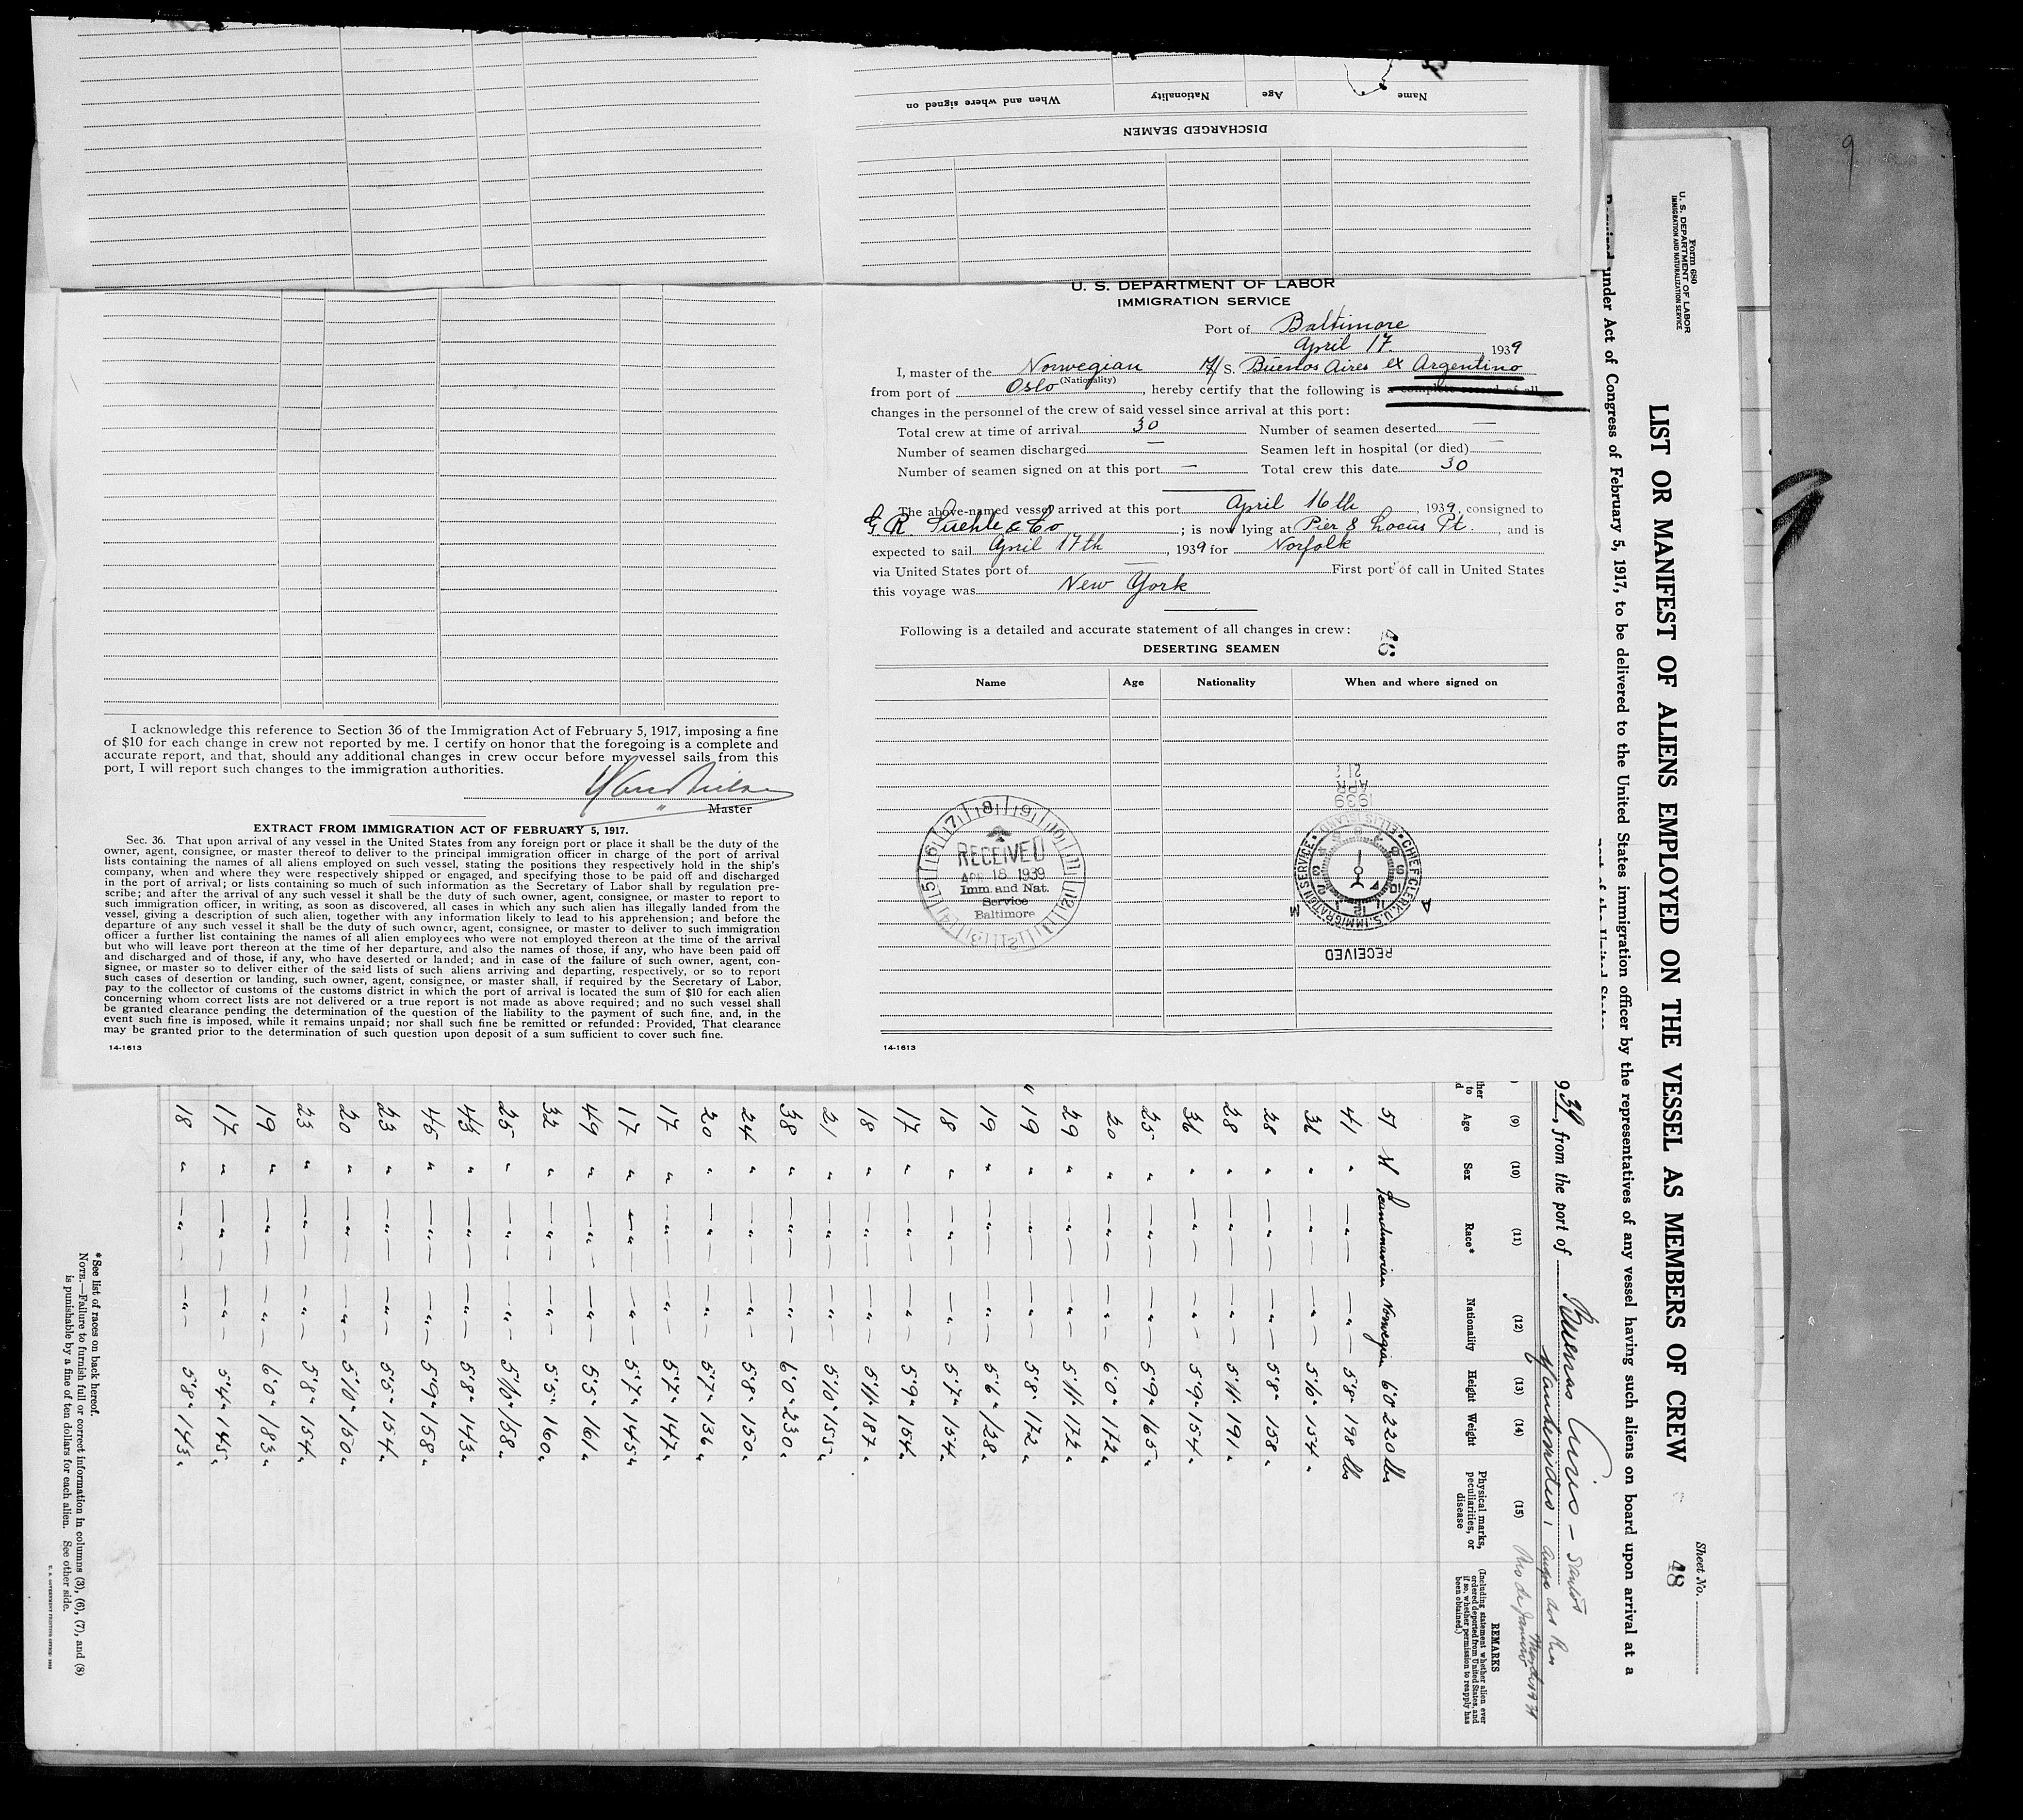 Name Age Nationality When and where signed on
DISCHARGED SEAMEN
U. S. DEPARTMENT OF LABOR
IMMIGRATION SERVICE
Port of Baltimore
April 17. 1939
I, master of the Norwegian M/S. Buenos Aires ex Argentino
(Nationality)
from port of Oslo, hereby certify that the following is a complete record of all
changes in the personnel of the crew of said vessel since arrival at this port:
Total crew at time of arrival 30 Number of seamen deserted —
Number of seamen discharged — Seamen left in hospital (or died) —
Number of seamen signed on at this port — Total crew this date 30
The above-named vessel arrived at this port April 16th, 1939, consigned to
G. R. & Co; is now lying at Pier 8 Locus Pt., and is
expected to sail April 17th, 1939 for Norfolk
via United States port of — First port of call in United States
this voyage was New York
Following is a detailed and accurate statement of all changes in crew:
46
DESERTING SEAMEN
Name Age Nationality When and where signed on
RECEIVED
APR 18 1939
Imm. and Nat.
Service
Baltimore
1939
APR
21
CHIEF CLERK, U.S. IMMIGRATION SERVICE
ELLIS ISLAND
A M
RECEIVED
14-1613
I acknowledge this reference to Section 36 of the Immigration Act of February 5, 1917, imposing a fine
of $10 for each change in crew not reported by me. I certify on honor that the foregoing is a complete and
accurate report, and that, should any additional changes in crew occur before my vessel sails from this
port, I will report such changes to the immigration authorities.
Master
EXTRACT FROM IMMIGRATION ACT OF FEBRUARY 5, 1917.
Sec. 36. That upon arrival of any vessel in the United States from any foreign port or place it shall be the duty of the
owner, agent, consignee, or master thereof to deliver to the principal immigration officer in charge of the port of arrival
lists containing the names of all aliens employed on such vessel, stating the positions they respectively hold in the ship's
company, when and where they were respectively shipped or engaged, and specifying those to be paid off and discharged
in the port of arrival; or lists containing so much of such information as the Secretary of Labor shall by regulation pre-
scribe; and after the arrival of any such vessel it shall be the duty of such owner, agent, consignee, or master to report to
such immigration officer, in writing, as soon as discovered, all cases in which any such alien has illegally landed from the
vessel, giving a description of such alien, together with any information likely to lead to his apprehension; and before the
departure of any such vessel it shall be the duty of such owner, agent, consignee, or master to deliver to such immigration
officer a further list containing the names of all alien employees who were not employed thereon at the time of the arrival
but who will leave port thereon at the time of her departure, and also the names of those, if any, who have been paid off
and discharged and of those, if any, who have deserted or landed; and in case of the failure of such owner, agent, con-
signee, or master so to deliver either of the said lists of such aliens arriving and departing, respectively, or so to report
such cases of desertion or landing, such owner, agent, consignee, or master shall, if required by the Secretary of Labor,
pay to the collector of customs of the customs district in which the port of arrival is located the sum of $10 for each alien
concerning whom correct lists are not delivered or a true report is not made as above required; and no such vessel shall
be granted clearance pending the determination of the question of the liability to the payment of such fine, and, in the
event such fine is imposed, while it remains unpaid; nor shall such fine be remitted or refunded: Provided, That clearance
may be granted prior to the determination of such question upon deposit of a sum sufficient to cover such fine.
14-1613
9
Form 680
U. S. DEPARTMENT OF LABOR
IMMIGRATION AND NATURALIZATION SERVICE
Sheet No.
48
LIST OR MANIFEST OF ALIENS EMPLOYED ON THE VESSEL AS MEMBERS OF CREW
under Act of Congress of February 5, 1917, to be delivered to the United States immigration officer by the representatives of any vessel having such aliens on board upon arrival at a
port of the United States
39, from the port of Buenos Aires - Santos
Rio de Janeiro
(9) (10) (11) (12) (13) (14) (15)
Age Sex Race* Nationality Height Weight Physical marks, peculiarities, or disease
REMARKS
(Including statement whether alien ever ordered deported from United States, and if so, whether permission to reapply has been obtained.)
57 M Scandinavian Norwegian 6'0 220 lbs
41 " —"— —"— 5'8" 198 lbs
36 " —"— —"— 5'6" 154 "
28 " —"— —"— 5'8" 158 "
28 " —"— —"— 5'11" 191 "
36 " —"— —"— 5'9" 154 "
25 " —"— —"— 5'9" 165 "
20 " —"— —"— 6'0" 172 "
29 " —"— —"— 5'11" 172 "
19 " —"— —"— 5'8" 172 "
19 " —"— —"— 5'6" 128 "
18 " —"— —"— 5'7" 154 "
17 " —"— —"— 5'9" 154 "
18 " —"— —"— 5'11" 187 "
21 " —"— —"— 5'10" 155 "
38 " —"— —"— 6'0" 230 "
24 " —"— —"— 5'8" 150 "
20 " —"— —"— 5'7" 136 "
17 " —"— —"— 5'7" 147 "
17 " —"— —"— 5'7" 145 "
49 " —"— —"— 5'5" 161 "
32 " —"— —"— 5'5" 160 "
25 " —"— —"— 5'10" 158 "
43 " —"— —"— 5'8" 143 "
45 " —"— —"— 5'9" 158 "
23 " —"— —"— 5'5" 154 "
20 " —"— —"— 5'10" 150 "
23 " —"— —"— 5'8" 154 "
19 " —"— —"— 6'0" 183 "
17 " —"— —"— 5'4" 145 "
18 " —"— —"— 5'8" 143 "
*See list of races on back hereof.
NOTE.—Failure to furnish full or correct information in columns (3), (6), (7), and (8)
is punishable by a fine of ten dollars for each alien. See other side.